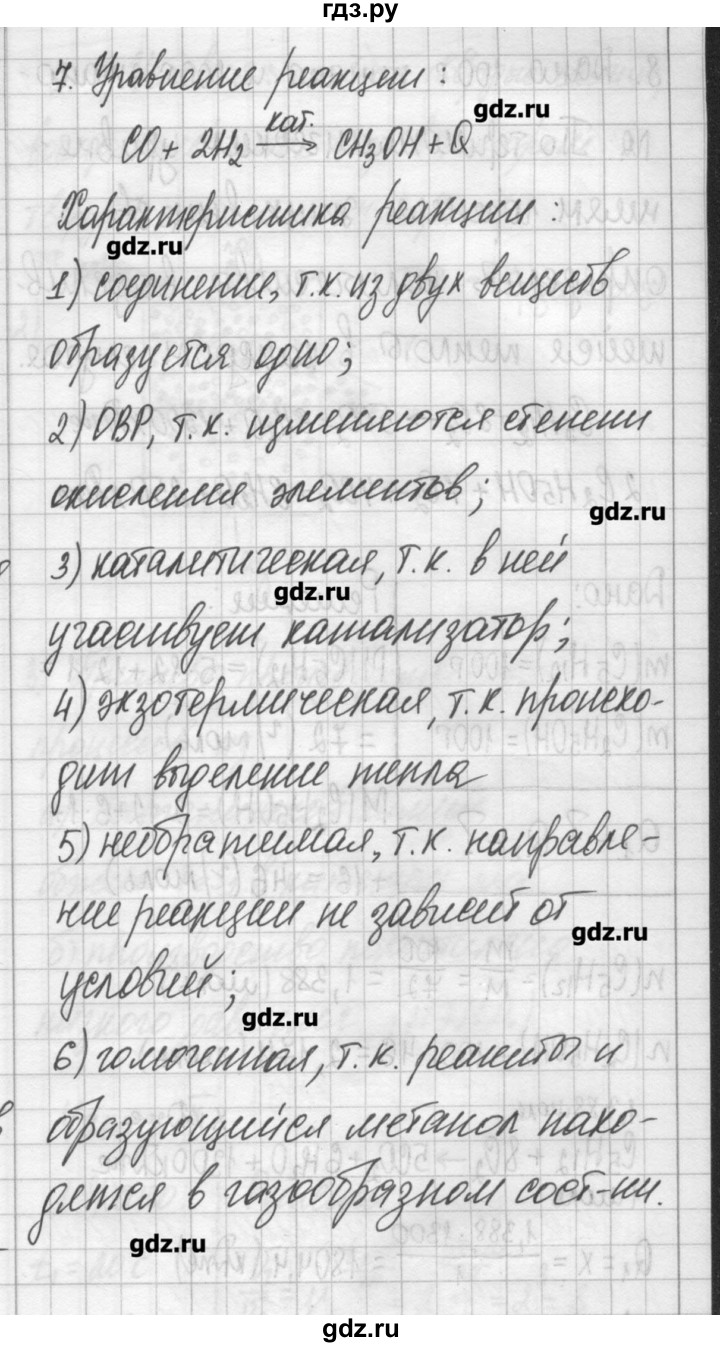 гдз.ру
7. Уравнение реакции:
gdz.ru
CO + 2H₂ кат.→ CH₃OH + Q
Характеристика реакции:
gdz.ru
1) соединение, т.к. из двух веществ
образуется одно;
2) ОВР, т.к. изменяются степени
окисления элементов;
gdz.ru
3) каталитическая, т.к. в ней
gdz.ru
участвует катализатор;
4) экзотермическая, т.к. происхо-
дит выделение тепла
5) необратимая, т.к. направле-
ние реакции не зависит от
gdz.ru
условий;
gdz.ru
6) гомогенная, т.к. реагенты и
образующийся метанол нахо-
дятся в газообразном сост-ии.
gdz.ru
gdz.ru